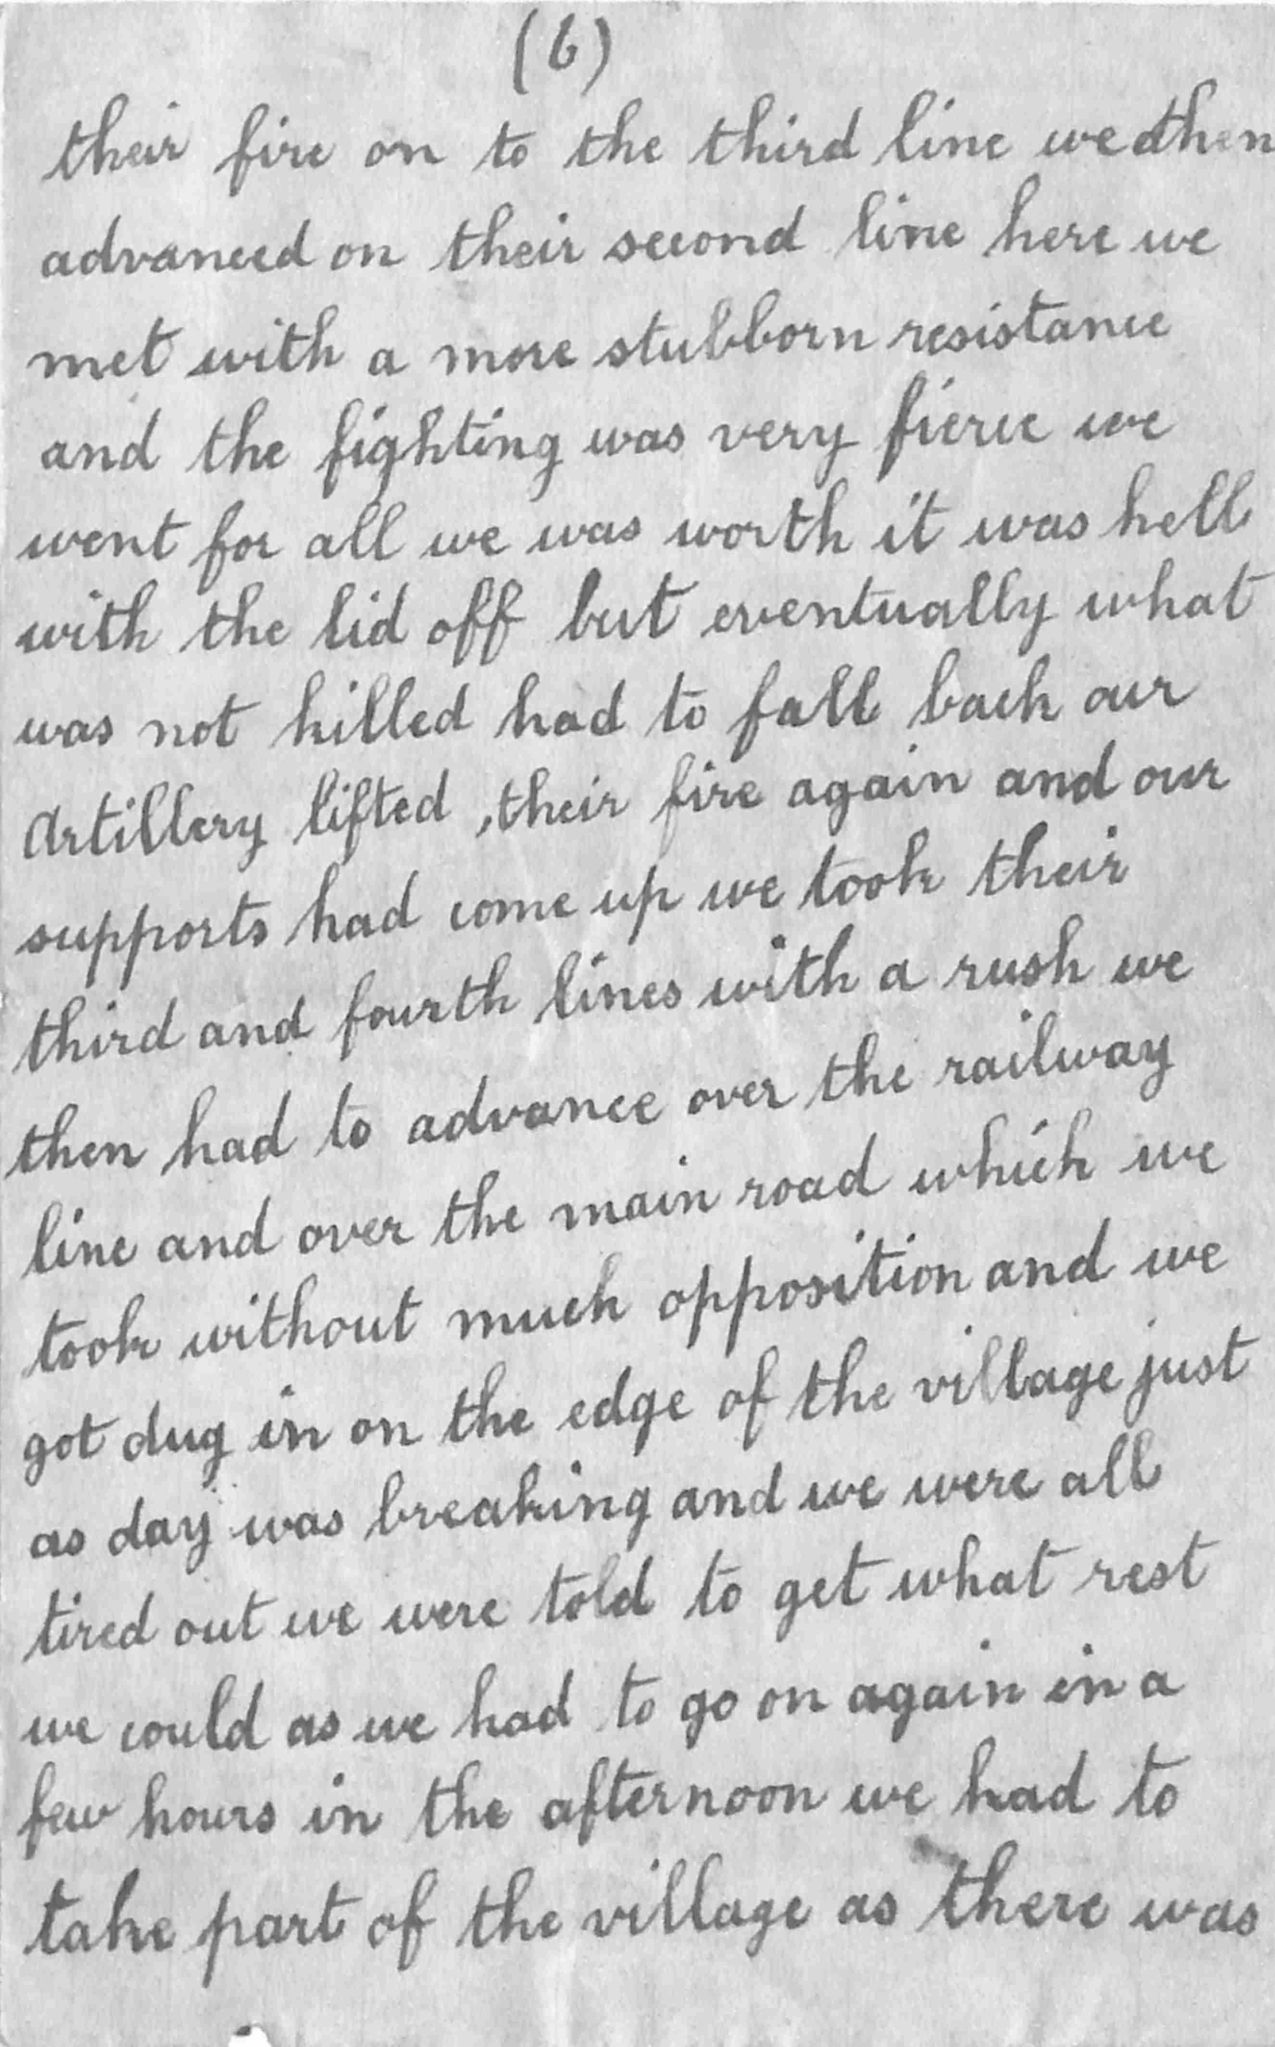 (6)
their fire on to the third line we then
advanced on their second line here we
met with a more stubborn resistance
and the fighting was very fierce we
went for all we was worth it was hell
with the lid off but eventually what
was not killed had to fall back our
Artillery lifted, their fire again and our
supports had come up we took their
third and fourth lines with a rush we
then had to advance over the railway
line and over the main road which we
took without much opposition and we
got dug in on the edge of the village just
as day was breaking and we were all
tired out we were told to get what rest
we could as we had to go on again in a
few hours in the afternoon we had to
take part of the village as there was